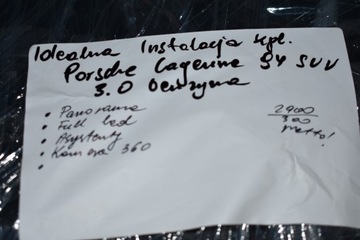 Idealna Instalacja kpl.
Porsche Cayenne 9Y SUV
3.0 Benzyna
• Panorama
• Full led
• Asystenty
• Kamera 360
•
netto!